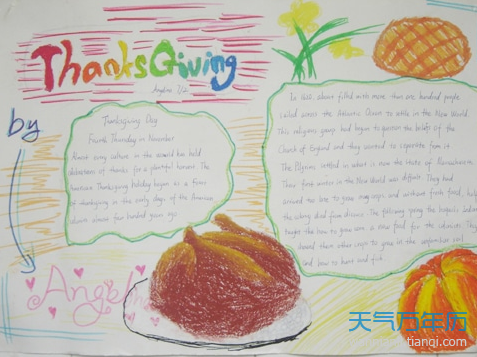 ThanksGiving
by
Thanksgiving Day
Fourth Thursday in November
Almost every culture in the world has held
celebration of thanks for a plentiful harvest. The
American Thanksgiving holiday began as a
of thanksgiving in the early days of the American
almost four hundred years ago
In 1620, a filled with more than one hundred people
sailed across the Atlantic Ocean to settle in the New World.
This religious group had begun to question the beliefs of the
Church of England and they wanted to separate from it.
The Pilgrims settled in what is now the state of Massachusetts.
Their first winter in the New World was difficult. They had
arrived too late to grow many crops, and without fresh food, half
the colony died from disease. The following spring the Iroquois Indians
taught the how to grow corn a new food for the colonists. They
showed them other crops to grow in the soil
and how to hunt and fish.
天气万年历
tianqi.com